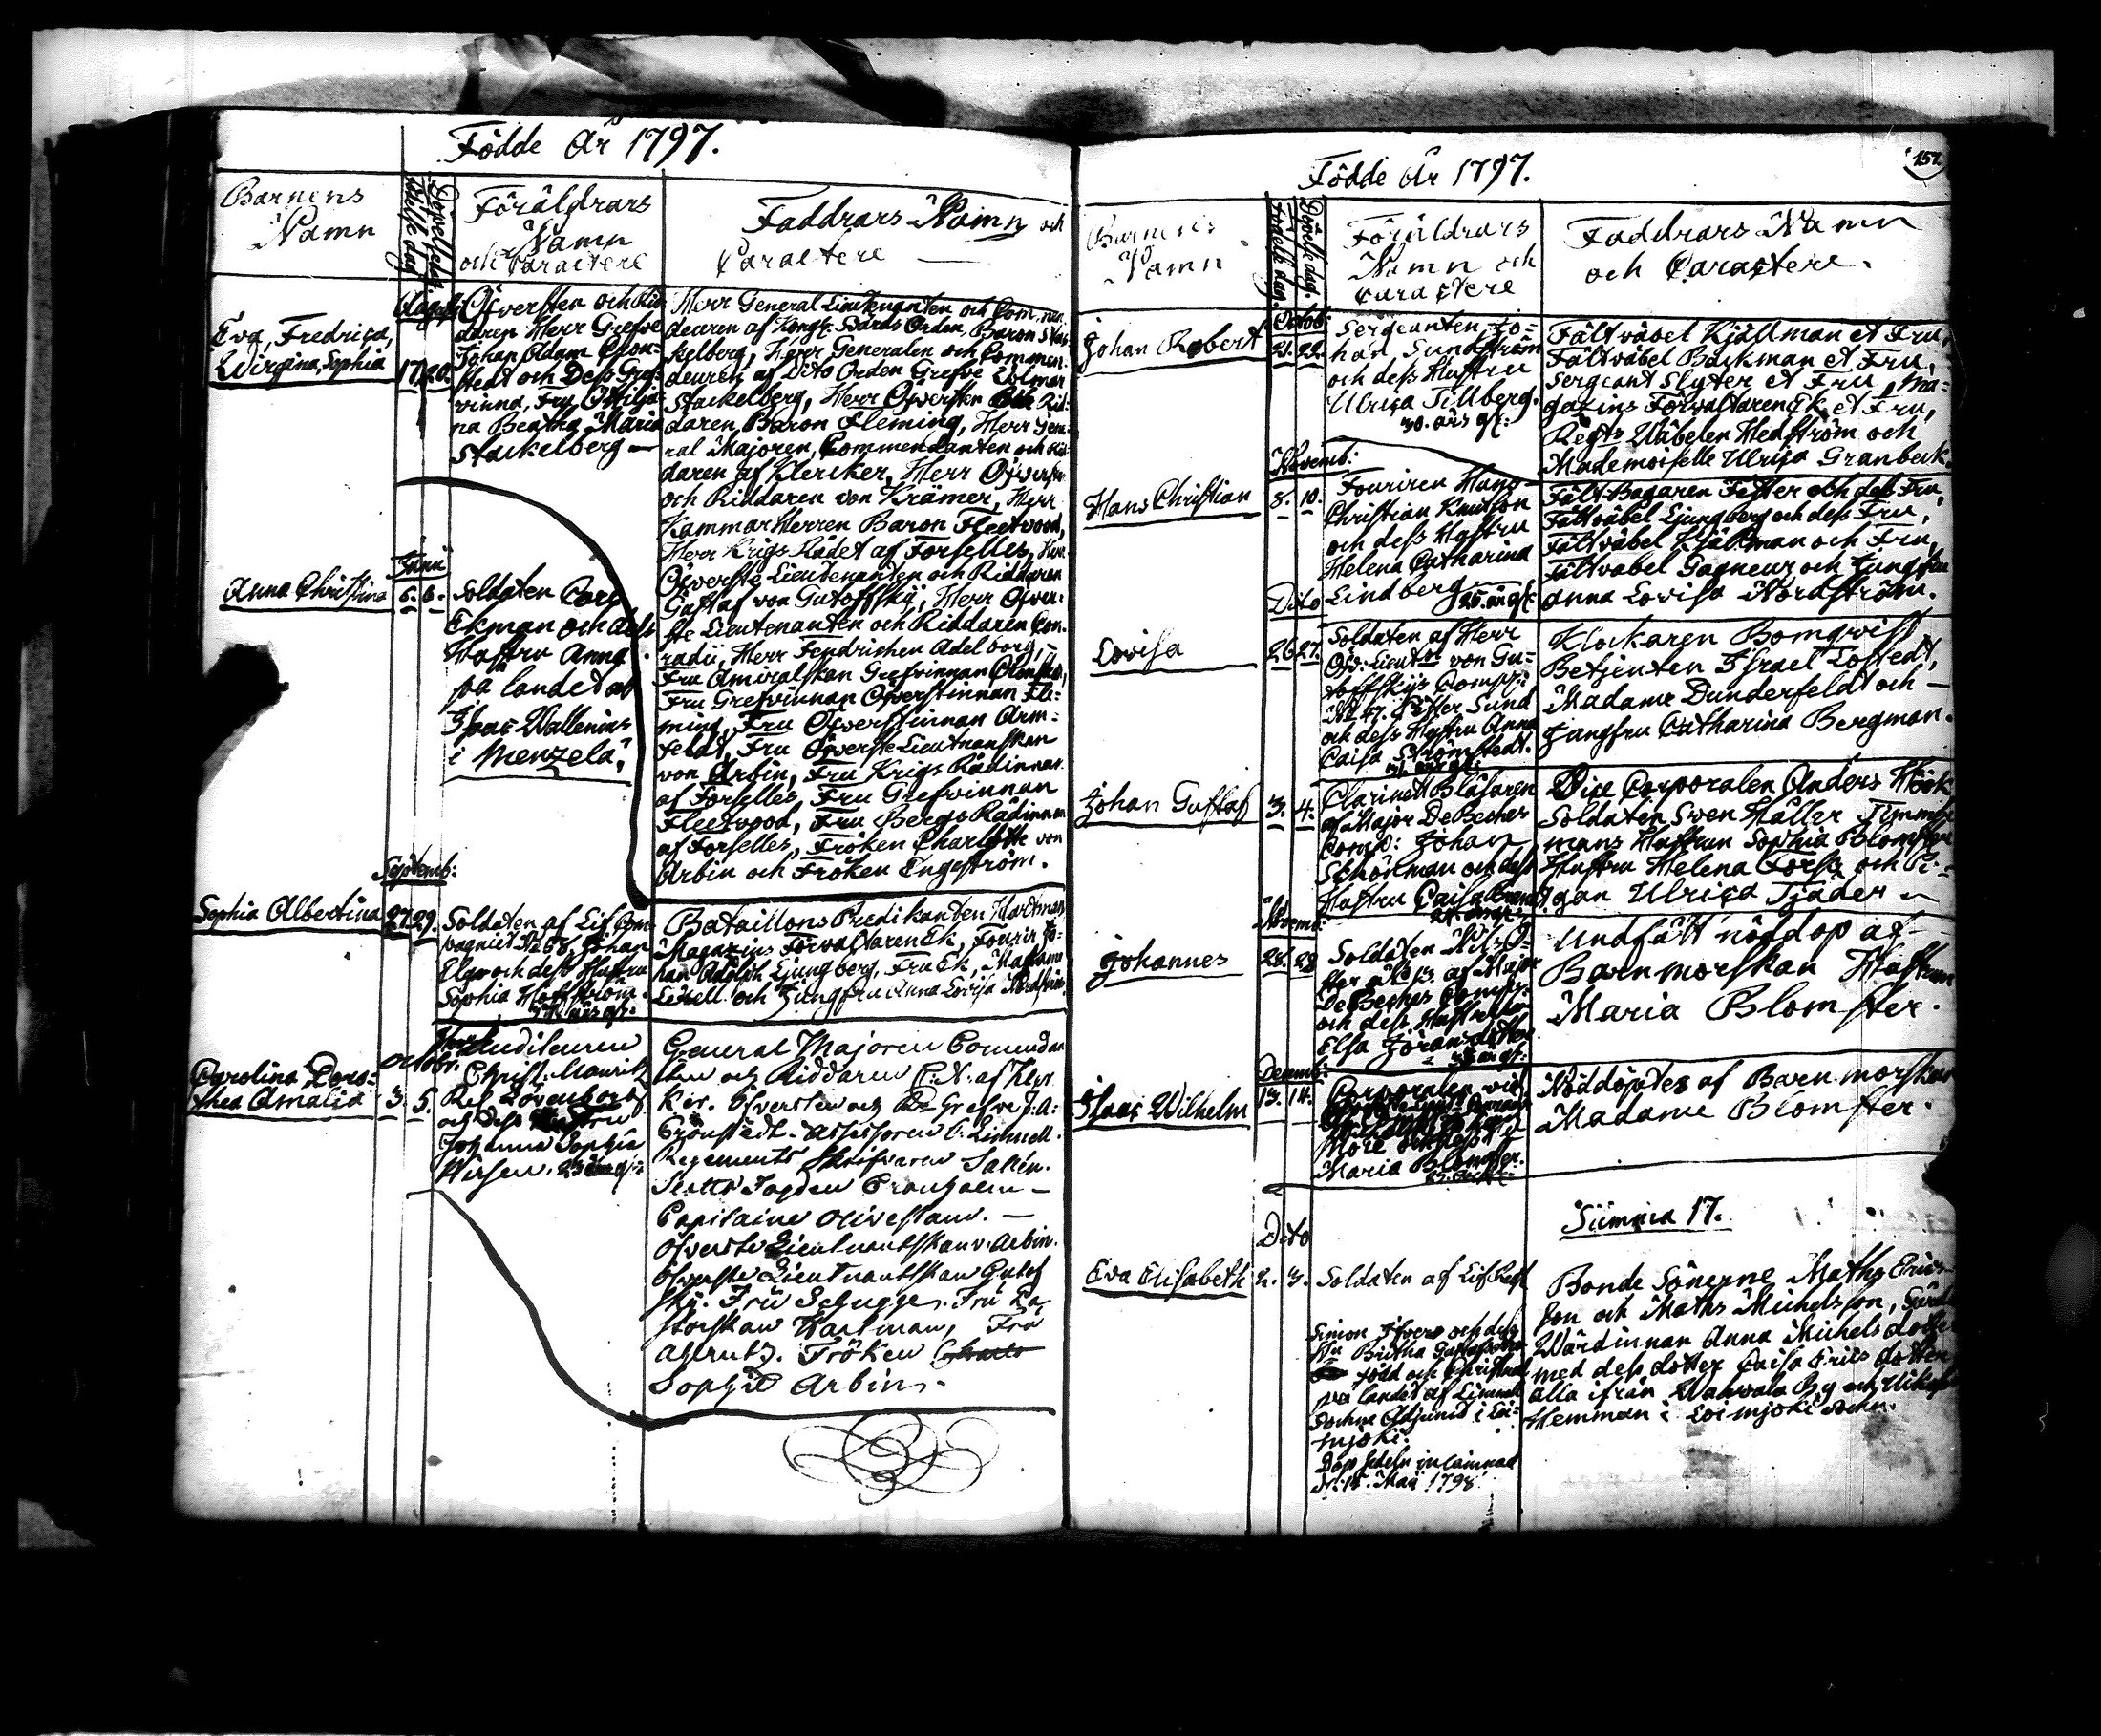 Födde År 1797.
Barnens
Namn
Föräldrars
Namn
och Caractere
Faddrars Namn och
Caractere
August:
Eva, Fredrica,
Wirgina, Sophia
17. 20.
Öfversten och Rid-
daren Herr Grefve
Johan Adam Cron-
stedt och Dess Gref-
vinna, Fru
na Beatha Maria
Stackelberg
Herr General Lieutenanten och Com men
deuren af Kongl: Svärds Orden, Baron Stac
kelberg, Herr Generalen och Commen-
deuren af Dito Orden Grefve Wolmar
Stackelberg, Herr Öfversten och Rid-
daren, Baron Fleming, Herr Gene-
ral Majoren, Commendanten och Rid
daren af Klercker, Herr Öfversten
och Riddaren von Krämer, Herr
Kammar Herren Baron Fleetwood,
Herr Krigs Rådet af Forselles, Herr
Öfverste Lieutenanten och Riddaren
Gustaf von Gutoffsky, Herr Öfver-
ste Lieutenanten och Riddaren Con-
radii, Herr Fendrichen Adelborg,
Fru Amiralskan Grefvinnan Cronstedt,
Fru Grefvinnan Öfverstinnan Fle-
ming, Fru Öfverstinnan Arm-
feldt, Fru Öfverste Lieutnantskan
von Arbin, Fru Krigs Rådinnan
af Forselles, Fru Grefvinnan
Fleetwood, Fru Bergs Rådinnan
af Forselles, Fröken Charlotte von
Arbin och Fröken Engeström.
Junii
Anna Christina
6. 6.
Soldaten Carl
Ekman och dess
Hustru Anna
på landet af
Isac Wallenius
i Menzelä,
Septemb:
Sophia Albertina
27. 29.
Soldaten af Lif Com
pagniet No 68. Johan
Elg och dess Hustru
Sophia Hoffström.
Bataillons Predikanten Hartman
Magazins Förvaltaren Ek, Fourir Jo-
han Adolph Ljungberg, Fru Ek, Madame
Lexell och Jungfru Anna Lovisa Nordström.
Octobr.
Carolina Doro-
thea Amalia
3. 5.
Auditeuren
Christ: Mauritz
och dess
Johanna Sophia
General Majoren Comendan
ten och Riddaren C: N. af Kler
ker. Öfversten och Rd Grefve J: A:
Crönstedt. Assessoren C. Limnell.
Regements Skrifvaren Salen.
Slotts Fogden Cronholm
Capitaine Olivestam.
Öfverste Lieutnantskan v. Arbin.
Öfverste Lieutnantskan Gutof
sky. Fru Schugge. Fru Pa
storskan Hartman, Fru
Ahlrutz. Fröken
Sophie Arbin.
157.
Födde År 1797.
Barnens
Namn
Födelse dag.
Döpelse dag.
Föräldrars
Namn och
Caractere
Faddrars Namn
och Caractere.
Octob:
Johan Robert
21. 22.
Sergeanten Jo-
han Sundström
och dess Hustru
Ulrica Tillberg.
30. års gl:
Fältväbel Kjällman et Fru,
Fältväbel Backman et Fru,
Sergeant Slyter et Fru, Ma-
gazins Förvaltaren Ek et Fru,
Regts Wäbelen Hedström och
Mademoiselle Ulrica Granbeck.
Novemb:
Hans Christian
8. 10.
Fouriren Hans
Christian Knutson
och dess Hustru
Helena Catharina
Lindberg
Fält Bagaren Fester och dess Fru,
Fältväbel Ljungberg och dess Fru,
Fältväbel Kjällman och Fru,
Fältväbel Gagneur och Jungfru
Anna Lovisa Nordström.
Dito
Lovisa
26. 27.
Soldaten af Herr
Öfv: Lieutnt von Gu-
toffskys Comp:
No 47. Petter Sund
och dess Hustru Anna
Caisa Strömstedt.
Klockaren Bomqvist
Betjenten Israel Löfstedt,
Madame Dunderfeldt och
Jungfru Catharina Bergman.
Johan Gustaf
3. 4.
Clarinett Blåsaren
af Major De Besches
Comp: Johan
Schörman och dess
Hustru Caisa
Vice Corporalen Anders Höök
Soldaten Sven Häller Timmer
mans Hustrun Sophia Blomster
Hustru Helena Forss och Pi-
gan Ulrica Tjäder
Novemb:
Johannes
28. 29.
Soldaten Nils Ö-
ster No 13. af Major
De Besches Comp:
och dess Hustru
Elsa Jöransdotter
Undfått nöddop af
Barnmorskan Hustrun
Maria Blomster.
Decemb:
Isaac Wilhelm
13. 14.
Corporalen vid
More och dess
Maria Blomster.
Nöddöptes af Barnmorskan
Madame Blomster.
Summa 17.
Dito
Eva Elisabeth
2. 3.
Soldaten af Lif Regt
Simon och dess
Hu Britha
född och Christnad
på landet af
Sockne Adjunct i Loi-
mjoki.
Döp sedeln inlämnad
d: 15. Maii 1798.
Bonde Sönerne Maths Erics
son och Maths Michelsson,
Wärdinnan Anna Michelsdotter
med dess dotter Caisa Erics dotter,
alla ifrån By och
Hemman i Loimjoki Sochn.